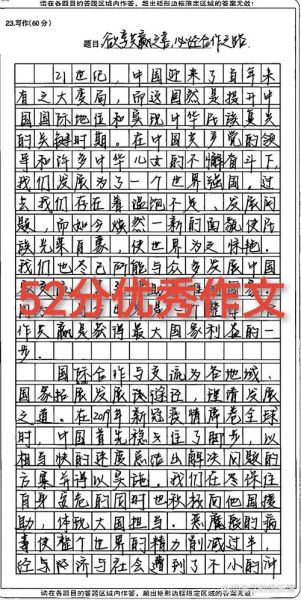 请在各题目的答题区域内作答，超出矩形边框限定区域的答案无效！
23.写作(60分)
题目 欲享共赢之喜，必经合作之路
21世纪，中国迎来了百年未
有之大变局，而这固然是提升中
国国际地位和实现中华民族复兴
的关键时期。在中国共产党的领
导和许多中华儿女的不懈奋斗下，
我们发展为了一个世界强国。过
去我们存在着温饱不足、发展问
题，而如今焕然一新的面貌使民
族光荣自豪，使世界为之惊艳。
我们也尽己所能与众多发展中国
52分优秀作文
作共赢是获得最大国家利益的一
步。
国际合作与交流为各地域、
国家拓展发展
之道。在2019年新冠疫情席卷全球
时，中国首先稳住了脚步，以
相当快的速度总结出解决问题的
方案并得以实施。我们在尽保住
自身安危的同时也积极向他国援
助，体现大国担当。恶魔般的病
毒使整个世界的精力削减过半，
经与经济与社会遭到了不小的冲
请在各题目的答题区域内作答，超出矩形边框限定区域的答案无效！